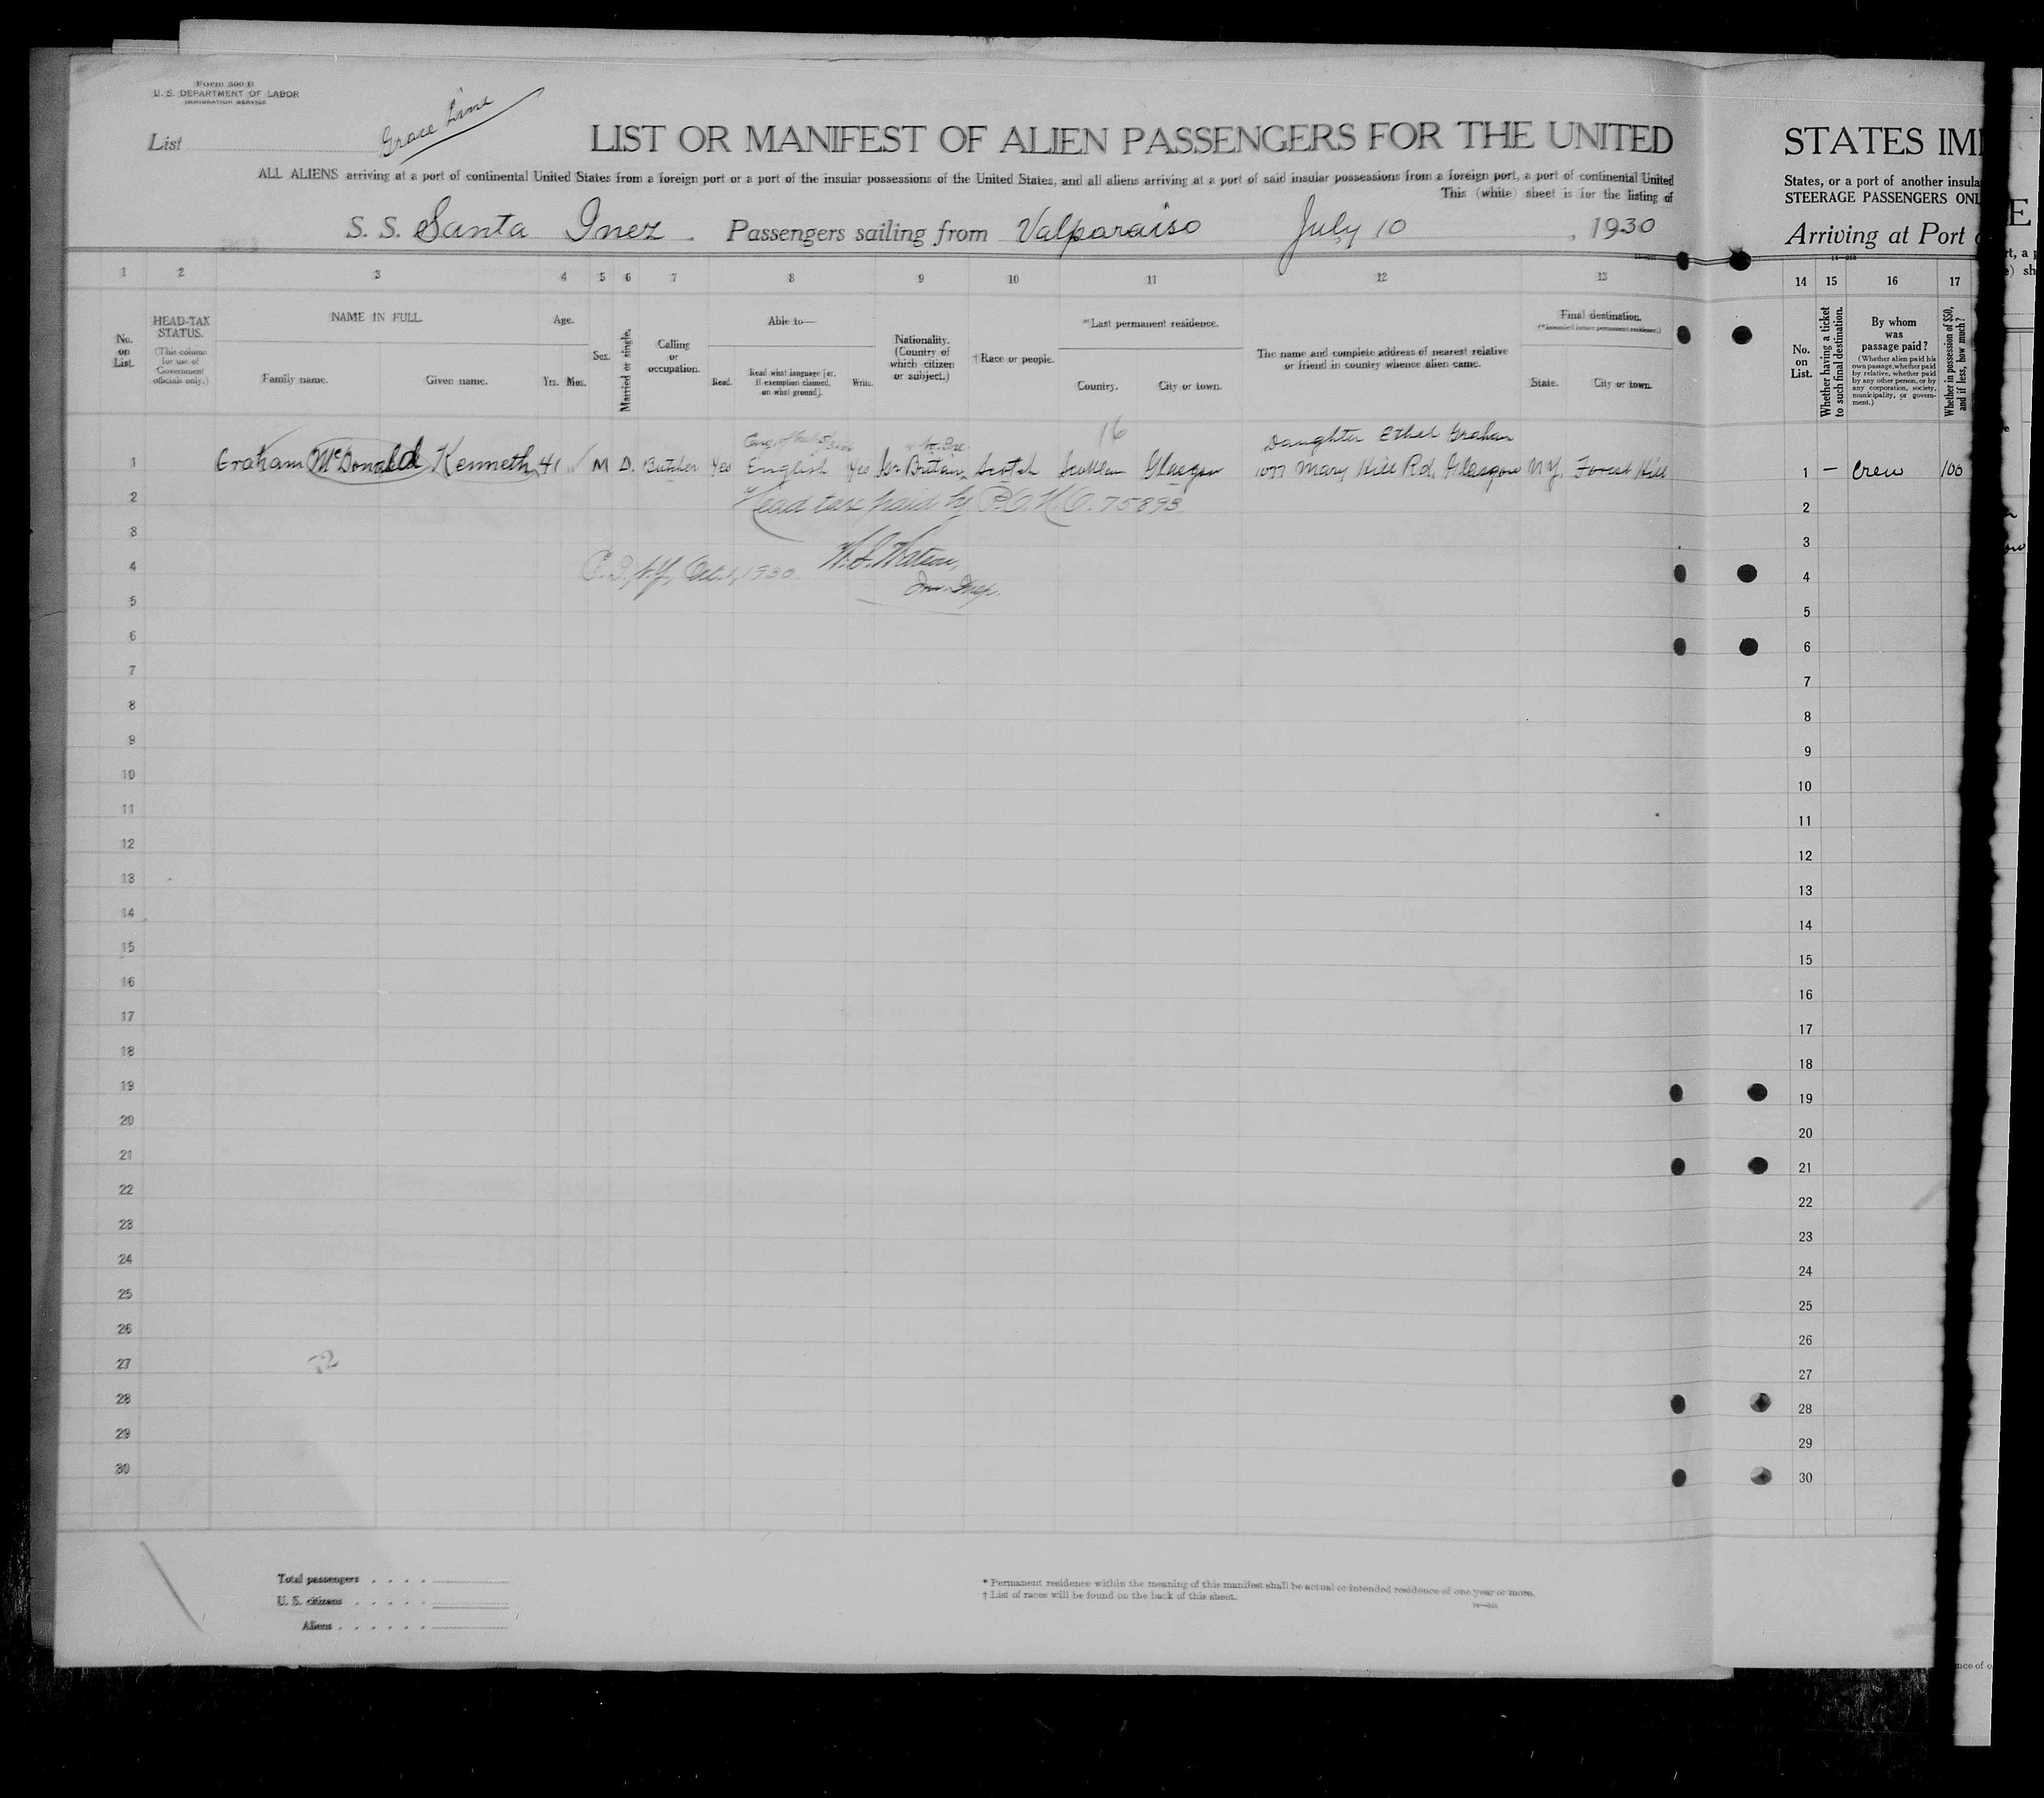 Form 500 B
U. S. DEPARTMENT OF LABOR
IMMIGRATION SERVICE
List
Grace Line
LIST OR MANIFEST OF ALIEN PASSENGERS FOR THE UNITED
ALL ALIENS arriving at a port of continental United States from a foreign port or a port of the insular possessions of the United States, and all aliens arriving at a port of said insular possessions from a foreign port, a port of continental United
This (white) sheet is for the listing of
S. S. Santa Inez. Passengers sailing from Valparaiso July 10, 1930
STATES IM
States, or a port of another insula
STEERAGE PASSENGERS ONL
Arriving at Port
1 2 3 4 5 6 7 8 9 10 11 12 13
14 15 16 17
No. on List.
HEAD-TAX STATUS.
(This column for use of Government officials only.)
NAME IN FULL
Family name. Given name.
Age.
Yrs. Mos.
Sex.
Married or single.
Calling or occupation.
Able to—
Read. Read what language [or, if exemption claimed, on what ground]. Write.
Nationality. (Country of which citizen or subject.)
†Race or people.
*Last permanent residence.
Country. City or town.
The name and complete address of nearest relative or friend in country whence alien came.
Final destination.
(*Intended future permanent residence.)
State. City or town.
No. on List.
Whether having a ticket to such final destination.
By whom was passage paid?
(Whether alien paid his own passage, whether paid by relative, whether paid by any other person, or by any corporation, society, municipality, or government.)
Whether in possession of $50, and if less, how much?
16
Daughter Ethel Graham
1 Graham McDonald Kenneth 41 M D. Butcher Yes English Yes Gr Britain Scotch Scotland Glasgow 1077 Mary Hill Rd, Glasgow N.Y. Forest Hill
1 — Crew 100
2 Head tax paid by P.O.M.O. 75893
2
3
3
4 E.I., N.Y., Oct. 1, 1930. Imm. Insp.
4
5
5
6
6
7
7
8
8
9
9
10
10
11
11
12
12
13
13
14
14
15
15
16
16
17
17
18
18
19
19
20
20
21
21
22
22
23
23
24
24
25
25
26
26
27
27
28
28
29
29
30
30
Total passengers . . . .
U. S. citizens . . . . .
Aliens . . . . . .
* Permanent residence within the meaning of this manifest shall be actual or intended residence of one year or more.
† List of races will be found on the back of this sheet.